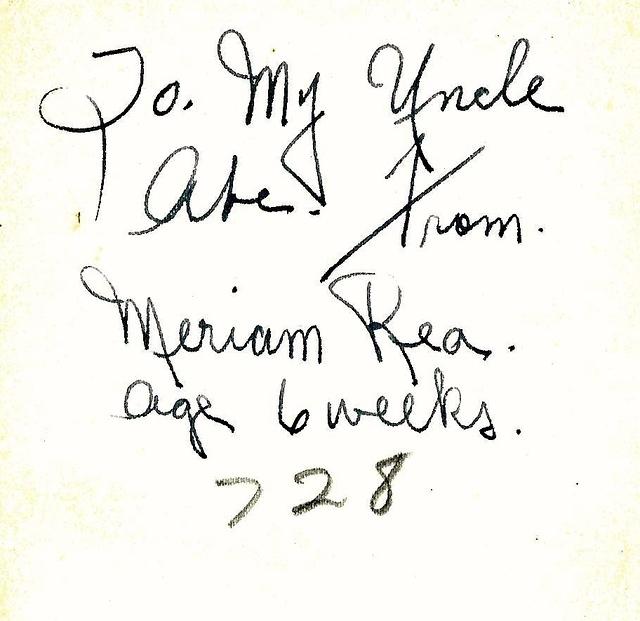 To. My Uncle
Abe. From.
Meriam Rea.
age 6 weeks.
728